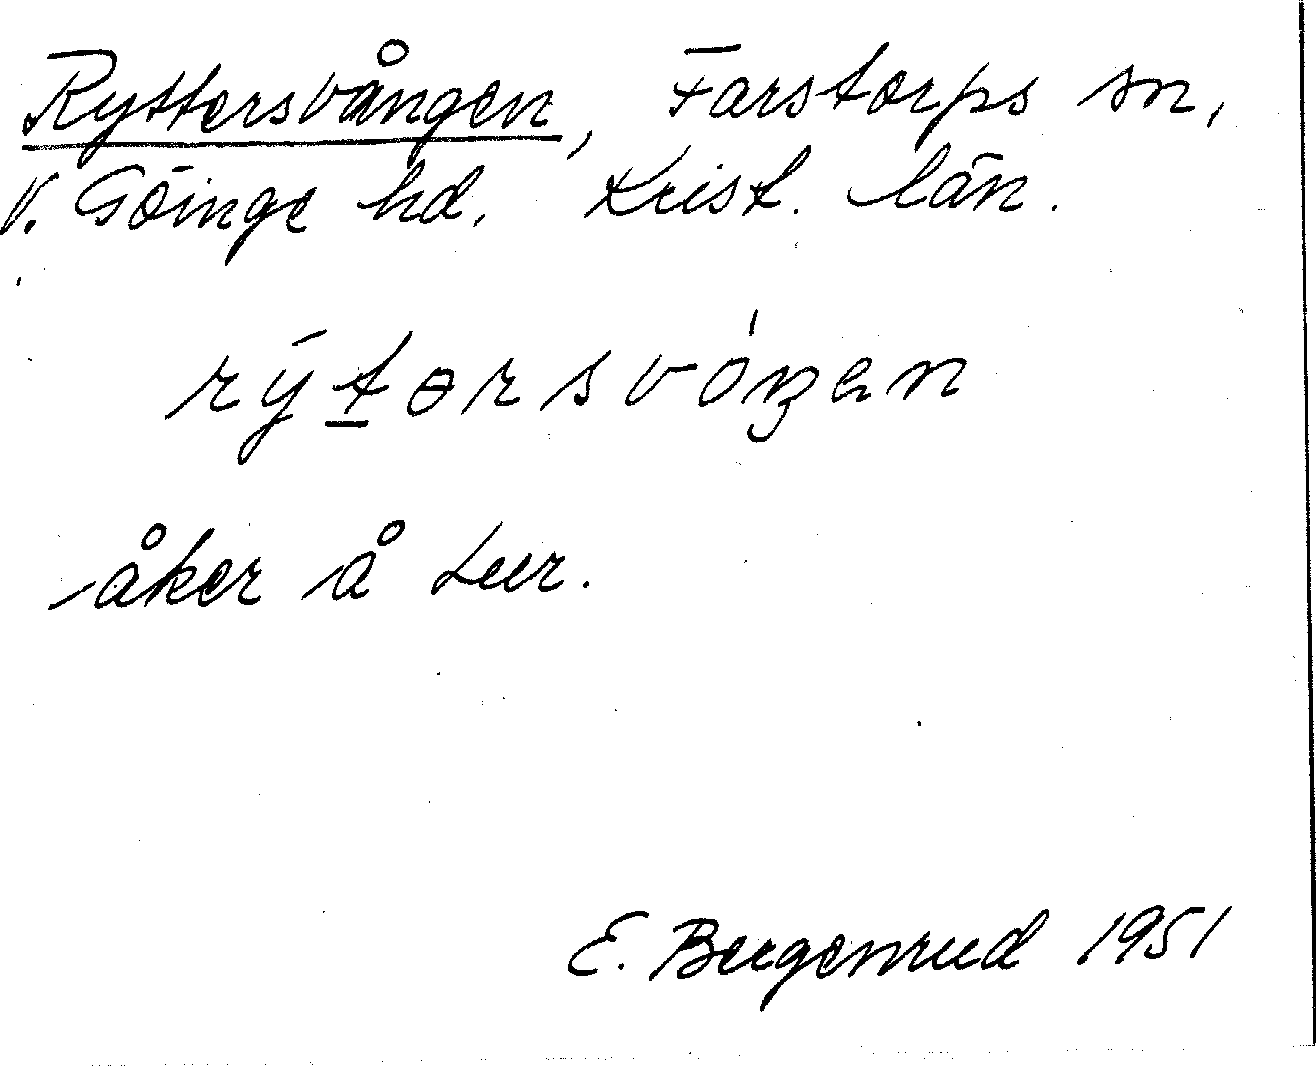 Ryttersvången, Farstorps sn,
V. Göinge hd. Krist. län.
rýt̲ərsvóŋen
åker å Lur.
E. Bergenrud 1951